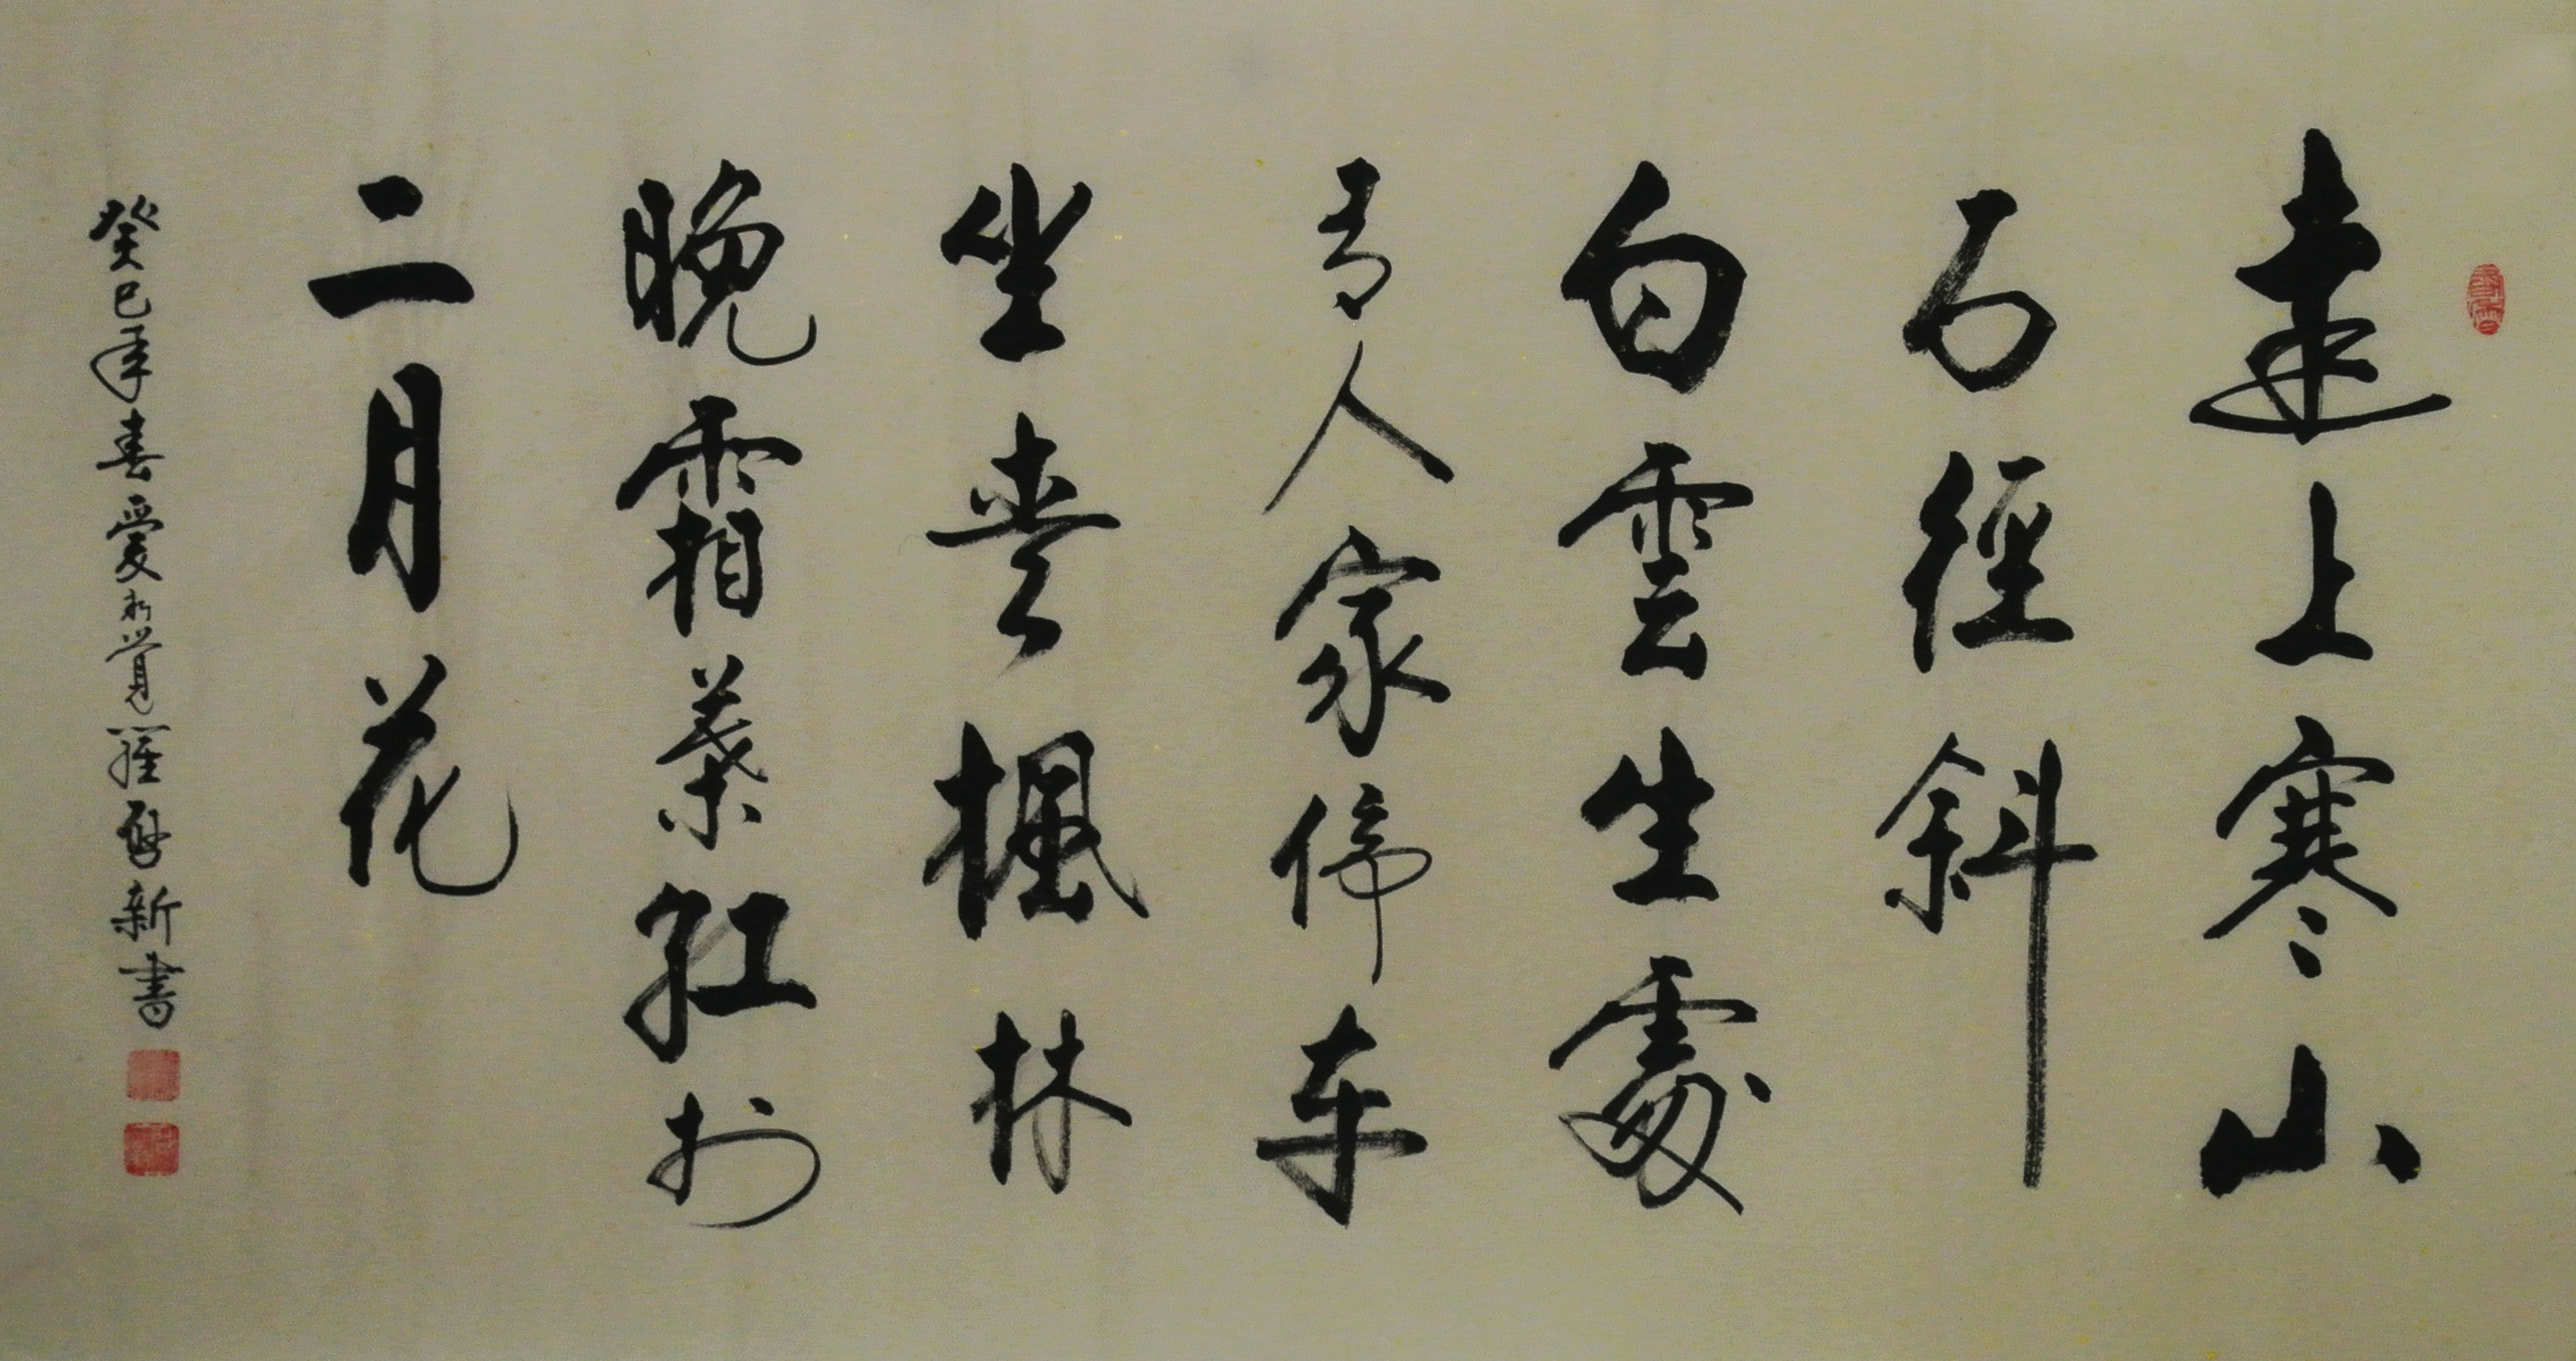 遠上寒山
石徑斜
白雲生處
有人家停车
坐爱楓林
晚霜葉紅於
二月花
癸巳年春愛新覺羅啓新書